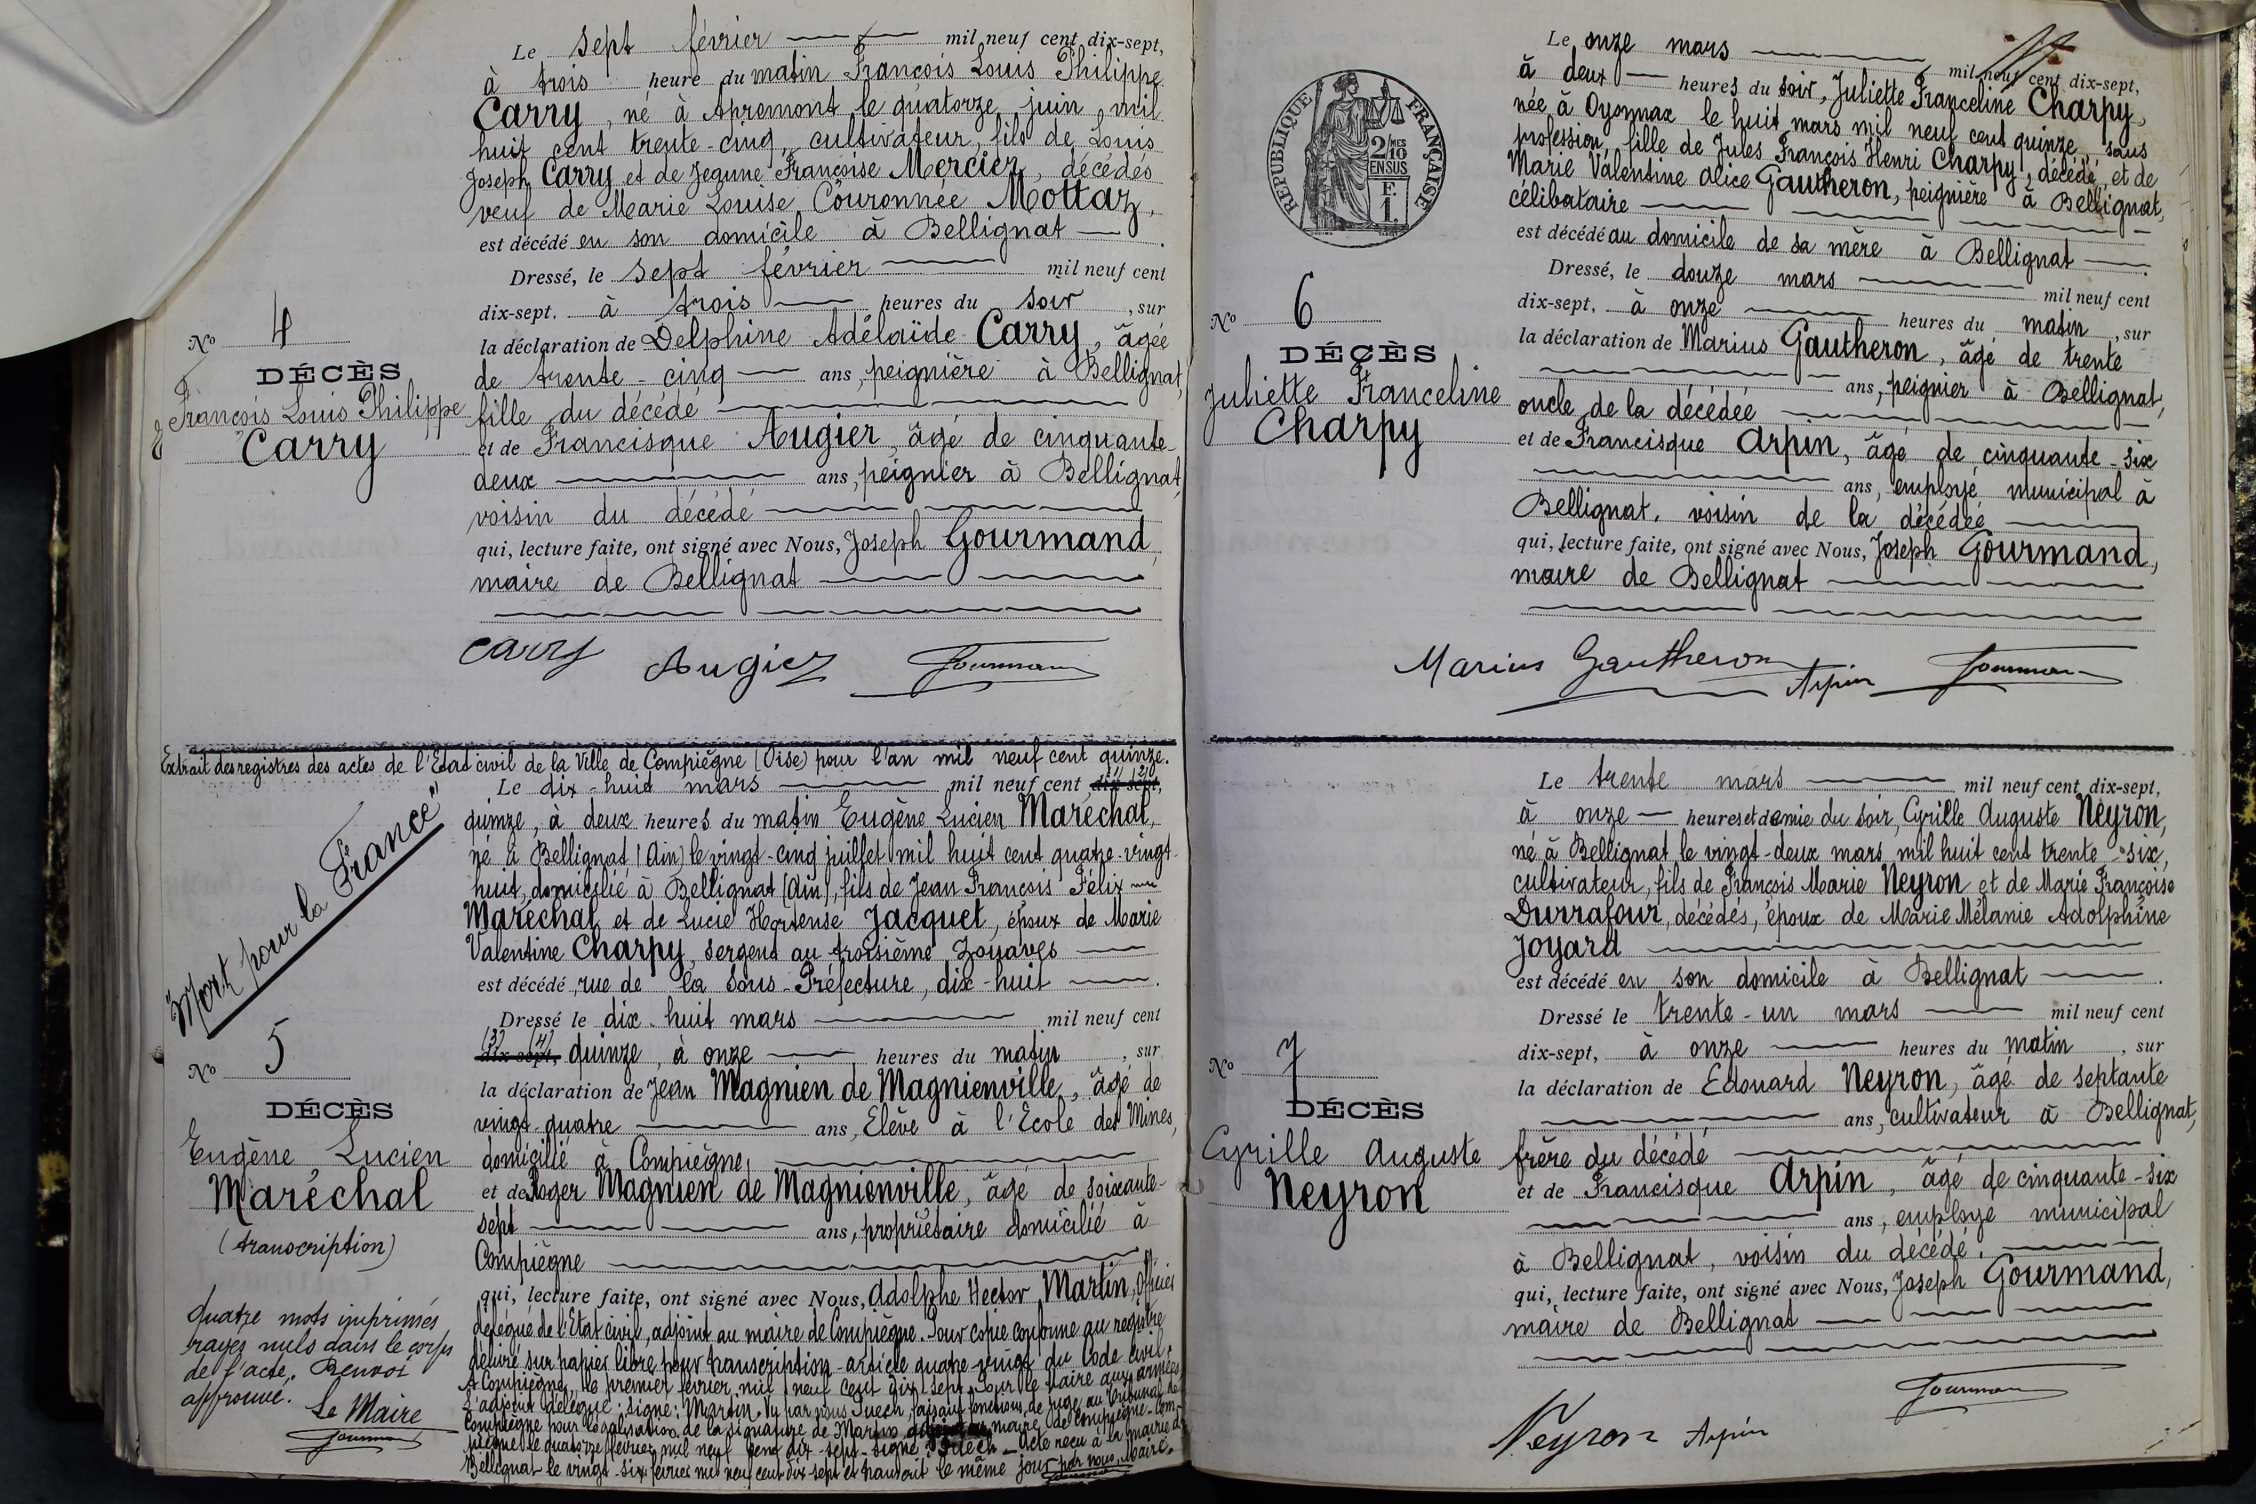 Le sept février mil neuf cent dix-sept,
à trois heure du matin François Louis Philippe
Carry, né à Apremont le quatorze juin mil
huit cent trente-cinq, cultivateur, fils de Louis
Joseph Carry et de Jeanne Françoise Mercier, décédés
veuf de Marie Louise Couronnée Mottaz,
est décédé en son domicile à Bellignat.
Dressé, le sept février mil neuf cent
dix-sept. à trois heures du soir, sur
la déclaration de Delphine Adélaïde Carry, âgée
de trente-cinq ans, peignière à Bellignat,
fille du décédé
et de Francisque Augier, âgé de cinquante-
deux ans, peignier à Bellignat,
voisin du décédé
qui, lecture faite, ont signé avec Nous, Joseph Gourmand,
maire de Bellignat
Carry Augier Gourmand
No 4
DÉCÈS
François Louis Philippe
Carry
Extrait des registres des actes de l'Etat civil de la Ville de Compiègne (Oise) pour l'an mil neuf cent quinze.
Le dix-huit mars mil neuf cent dix-sept,
quinze, à deux heures du matin Eugène Lucien Maréchal,
né à Bellignat (Ain) le vingt-cinq juillet mil huit cent quatre-vingt-
huit, domicilié à Bellignat (Ain), fils de Jean François Félix
Maréchal et de Lucie Hortense Jacquet, époux de Marie
Valentine Charpy, sergent au troisième Zouaves
est décédé, rue de la Sous-Préfecture, dix-huit.
Dressé le dix-huit mars mil neuf cent
(3) (4)
dix-sept, quinze, à onze heures du matin, sur
la déclaration de Jean Magnien de Magnienville, âgé de
vingt-quatre ans, Elève à l'Ecole des Mines,
domicilié à Compiègne,
et de Roger Magnien de Magnienville, âgé de soixante-
sept ans, propriétaire domicilié à
Compiègne
qui, lecture faite, ont signé avec Nous, Adolphe Hector Martin, Officier
délégué de l'Etat civil, adjoint au maire de Compiègne. Pour copie conforme au registre
délivré sur papier libre pour transcription - article quatre-vingt du Code civil.
A Compiègne, le premier février mil neuf cent dix sept. Pour le Maire aux armées
L'adjoint délégué: signé: Martin. Vu par nous Suech, faisant fonctions de juge au Tribunal de
Compiègne pour légalisation de la signature de Martin maire de Compiègne. Com-
piègne le quatorze février mil neuf cent dix-sept. Signé: Suech - Acte reçu à la mairie de
Bellignat le vingt-six février mil neuf cent dix sept et transcrit le même jour par nous, Maire.
Gourmand
"Mort pour la France"
No 5
DÉCÈS
Eugène Lucien
Maréchal
(transcription)
Quatre mots imprimés
rayés nuls dans le corps
de l'acte. Renvoi
approuvé.
Le Maire
Gourmand
Le onze mars mil neuf cent dix-sept,
à deux heures du soir, Juliette Franceline Charpy,
née à Oyonnax le huit mars mil neuf cent quinze, sans
profession, fille de Jules François Henri Charpy, décédé, et de
Marie Valentine Alice Gautheron, peignière à Bellignat,
célibataire
est décédé au domicile de sa mère à Bellignat.
Dressé, le douze mars mil neuf cent
dix-sept, à onze heures du matin, sur
la déclaration de Marius Gautheron, âgé de trente
ans, peignier à Bellignat,
oncle de la décédée
et de Francisque Arpin, âgé de cinquante-six
ans, employé municipal à
Bellignat, voisin de la décédée
qui, lecture faite, ont signé avec Nous, Joseph Gourmand,
maire de Bellignat
Marius Gautheron Arpin Gourmand
REPUBLIQUE FRANÇAISE
2/10 MES
EN SUS
F.
1.
No 6
DÉCÈS
Juliette Franceline
Charpy
Le trente mars mil neuf cent dix-sept,
à onze heures et demie du soir, Cyrille Auguste Neyron,
né à Bellignat le vingt-deux mars mil huit cent trente-six,
cultivateur, fils de François Marie Neyron et de Marie Françoise
Durrafour, décédés, époux de Marie Mélanie Adolphine
Joyard
est décédé en son domicile à Bellignat.
Dressé le trente-un mars mil neuf cent
dix-sept, à onze heures du matin, sur
la déclaration de Edouard Neyron, âgé de septante
ans, cultivateur à Bellignat,
frère du décédé
et de Francisque Arpin, âgé de cinquante-six
ans, employé municipal
à Bellignat, voisin du décédé.
qui, lecture faite, ont signé avec Nous, Joseph Gourmand,
maire de Bellignat
Gourmand
Neyron Arpin
No 7
DÉCÈS
Cyrille Auguste
Neyron